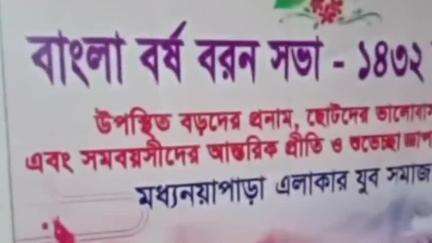 বাংলা বর্ষ বরন সভা - ১৪৩২
উপস্থিত বড়দের প্রনাম, ছোটদের
এবং সমবয়সীদের আন্তরিক প্রীতি ও শুভেচ্ছা
মধ্যনয়াপাড়া এলাকার যুব সমাজ